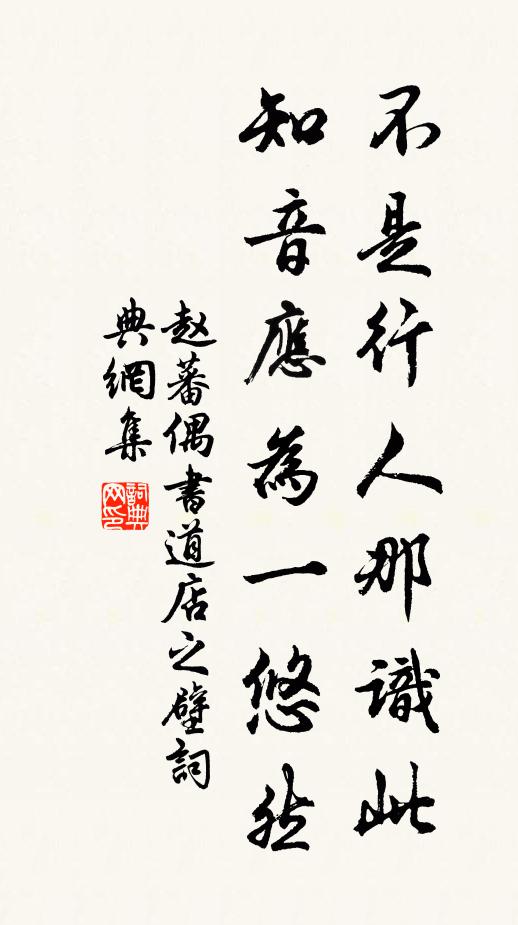 不是行人那識此
知音應為一悠然
赵蕃偶書道店之壁詞
典網集
詞典网印